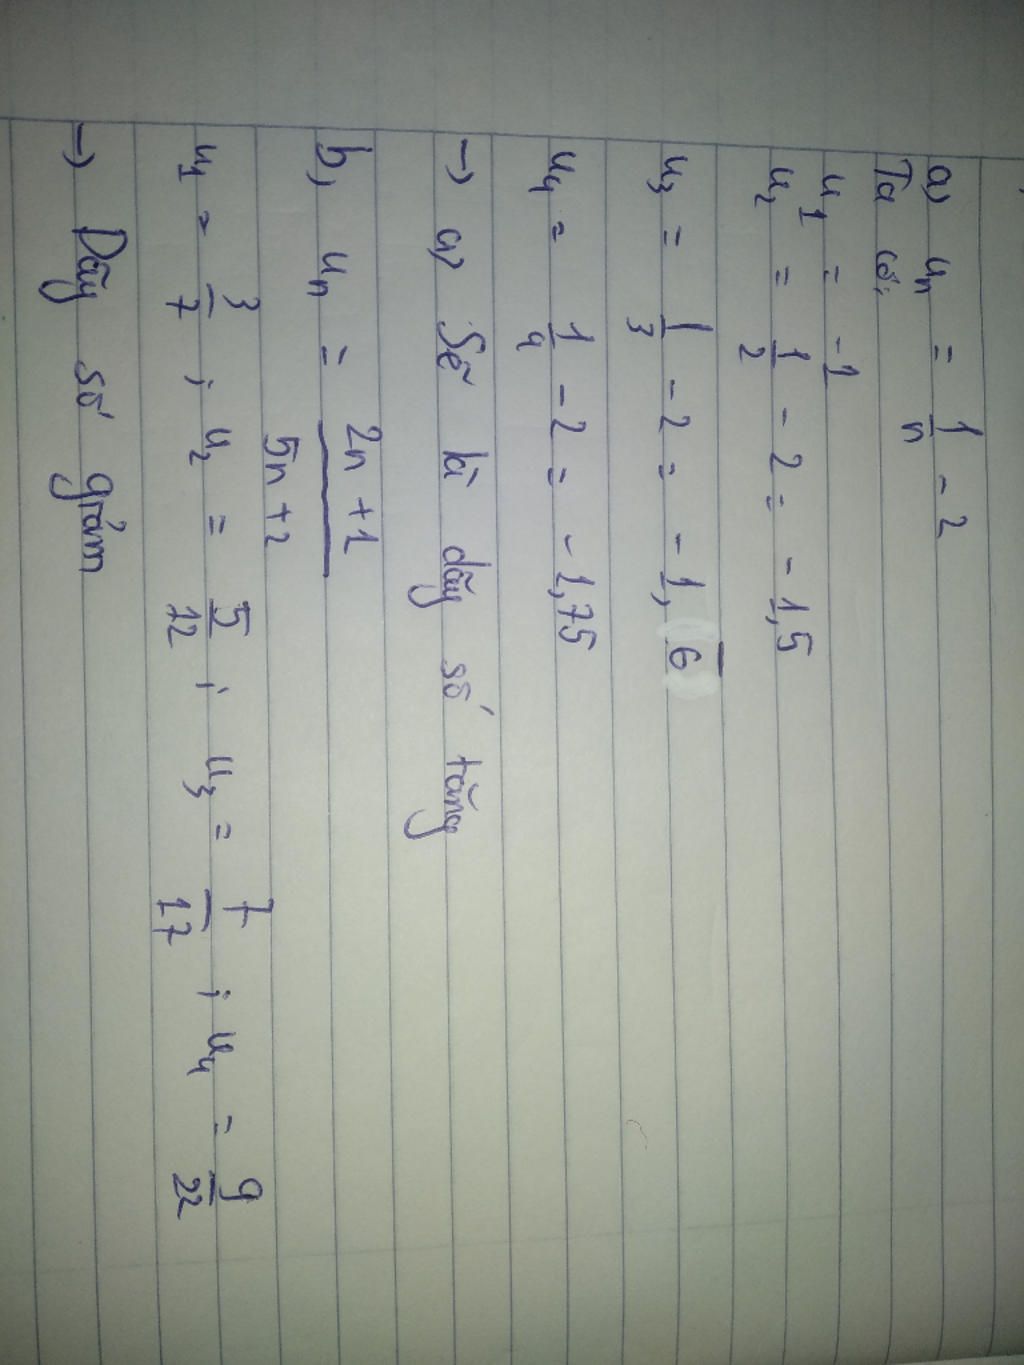 a) uₙ = 1/n - 2
Ta có:
u₁ = -1
u₂ = 1/2 - 2 = -1,5
u₃ = 1/3 - 2 = -1,6̅
u₄ = 1/4 - 2 = -1,75
→ a) Sẽ là dãy số tăng
b, uₙ = 2n + 1 / 5n + 2
u₁ = 3/7 ; u₂ = 5/12 ; u₃ = 7/17 ; u₄ = 9/22
→ Dãy số giảm